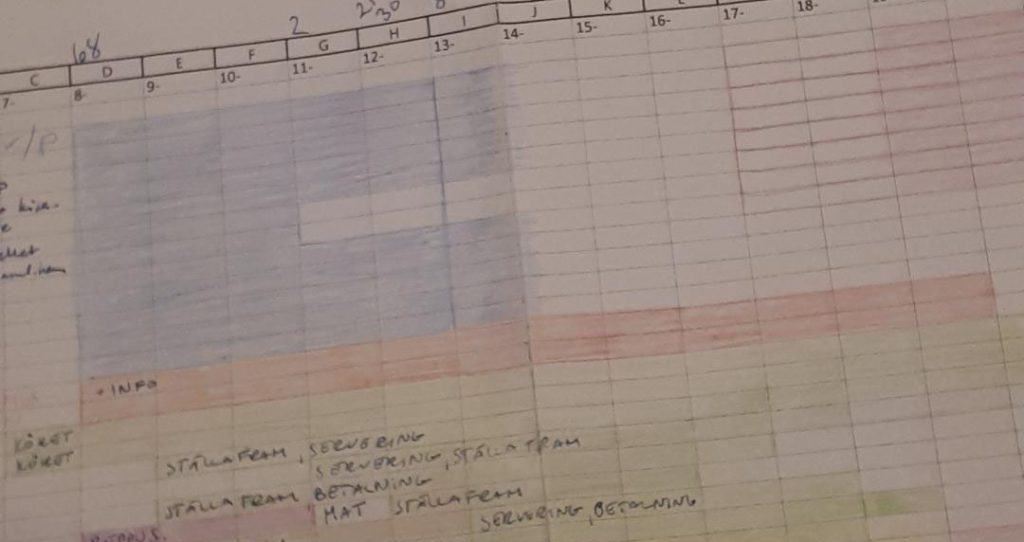 68 2 2³⁰
C D E F G H I J K
7- 8- 9- 10- 11- 12- 13- 14- 15- 16- 17- 18-
/P
+ INFO
KÖKET
KÖKET
STÄLLA FRAM, SERVERING
SERVERING, STÄLLA FRAM
STÄLLA FRAM BETALNING
MAT STÄLLA FRAM
SERVERING, BETALNING